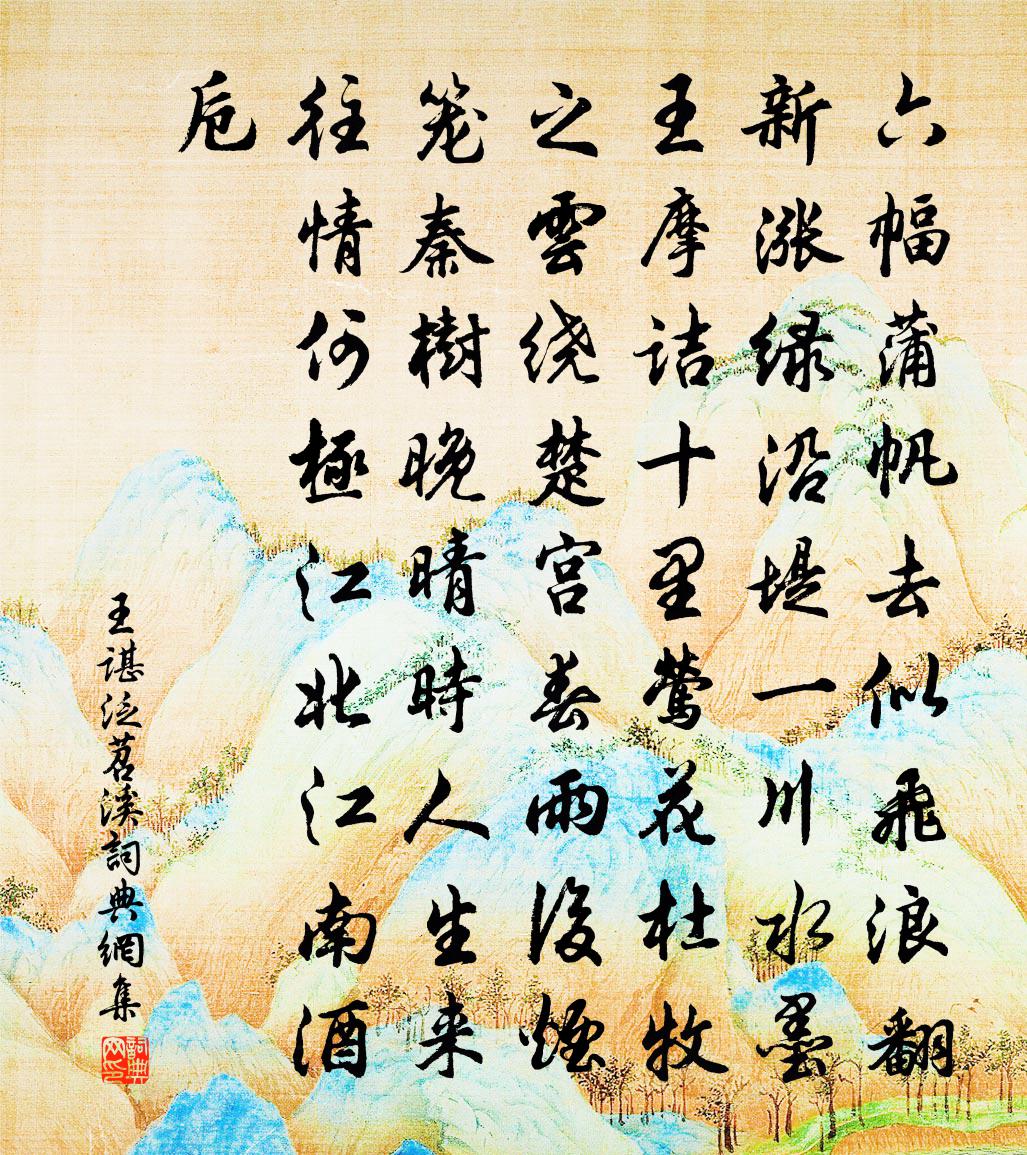 六幅蒲帆去似飛浪翻
新漲绿沿堤一川水墨
王摩詰十里鶯花杜牧
之雲绕楚宫春雨後煙
笼秦樹晚晴時人生来
往情何極江北江南酒
卮
王諶泛苕溪詞典網集
詞典网印